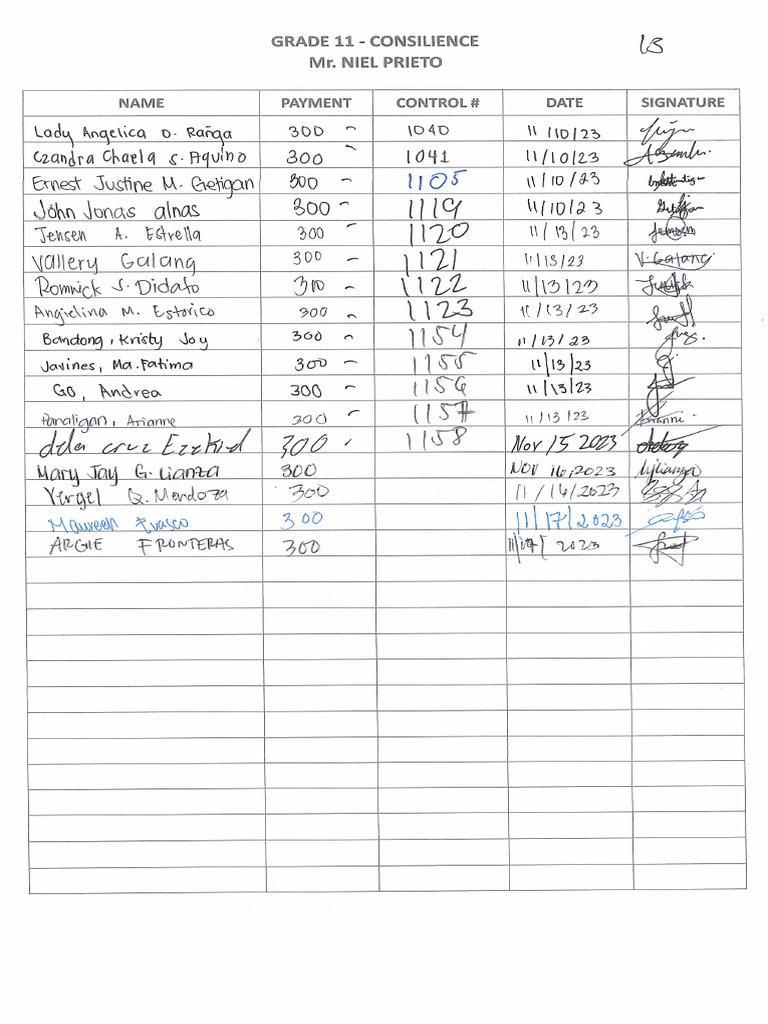 GRADE 11 - CONSILIENCE
Mr. NIEL PRIETO
NAME PAYMENT CONTROL # DATE SIGNATURE
Lady Angelica O. Rañga 300 - 1040 11/10/23
Czandra Chaela S. Aquino 300 - 1041 11/10/23
Ernest Justine M. Getigan 300 - 1105 11/10/23
John Jonas alnas 300 - 1119 11/10/23
Jensen A. Estrella 300 - 1120 11/13/23
Vallery Galang 300 - 1121 11/13/23 V. Galang
Romnick S. Didato 300 - 1122 11/13/23
Angielina M. Estorico 300 - 1123 11/13/23
Bandong, Kristy Joy 300 - 1154 11/13/23
Javines, Ma. Fatima 300 - 1155 11/13/23
Go, Andrea 300 - 1156 11/13/23
Panaligan, Arianne 300 - 1157 11/13/23 Arianne
dela cruz Ezekiel 300 - 1158 Nov 15 2023
Mary Jay G. Lianza 300 NOV 16, 2023 mjlianza
Virgel Q. Mendoza 300 11/16/2023
Maureen Evasco 300 11/17/2023
ARGIE FRONTERAS 300 11/17/2023